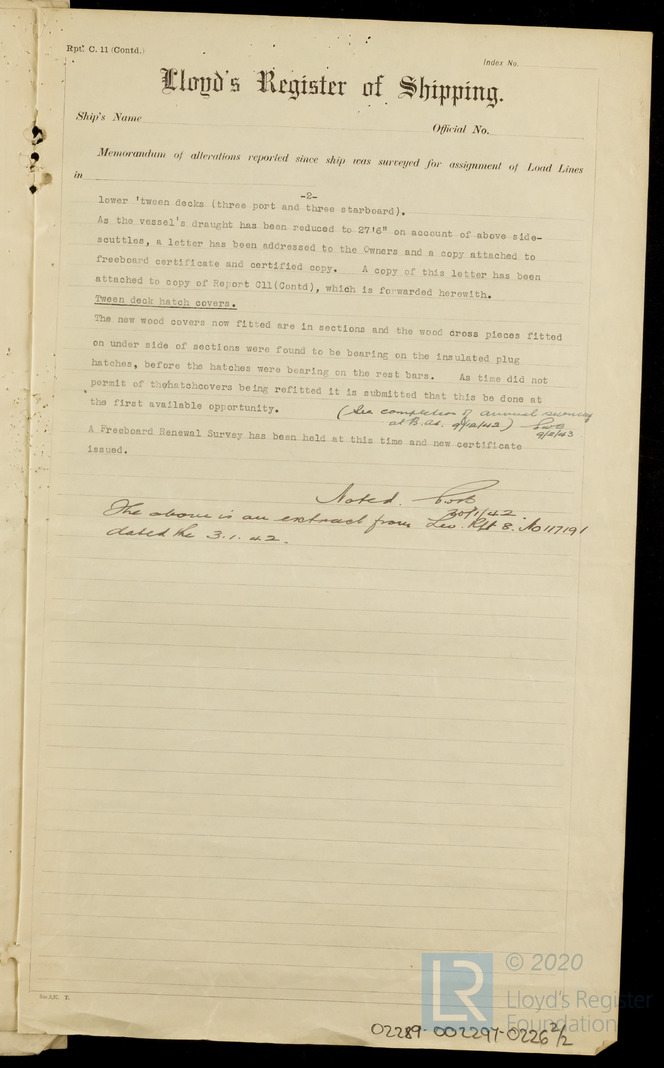 Rpt. C. 11 (Contd.)
Index No.
Lloyd's Register of Shipping.
Ship's Name
Official No.
Memorandum of alterations reported since ship was surveyed for assignment of Load Lines
in
-2-
lower 'tween decks (three port and three starboard).
As the vessel's draught has been reduced to 27'6" on account of above side-
scuttles, a letter has been addressed to the Owners and a copy attached to
freeboard certificate and certified copy. A copy of this letter has been
attached to copy of Report C11(Contd), which is forwarded herewith.
Tween deck hatch covers.
The new wood covers now fitted are in sections and the wood cross pieces fitted
on under side of sections were found to be bearing on the insulated plug
hatches, before the hatches were bearing on the rest bars. As time did not
permit of the/hatchcovers being refitted it is submitted that this be done at
the first available opportunity.
(See completion of annual survey
at B. As. 9/12/42)
9/2/43
A Freeboard Renewal Survey has been held at this time and new certificate
issued.
Noted.
30/1/42
The above is an extract from Rpt 8. No 117191
dated the 3. 1. 42.
© 2020
LR
Lloyd's Register
Foundation
02289-002297-0226 2/2